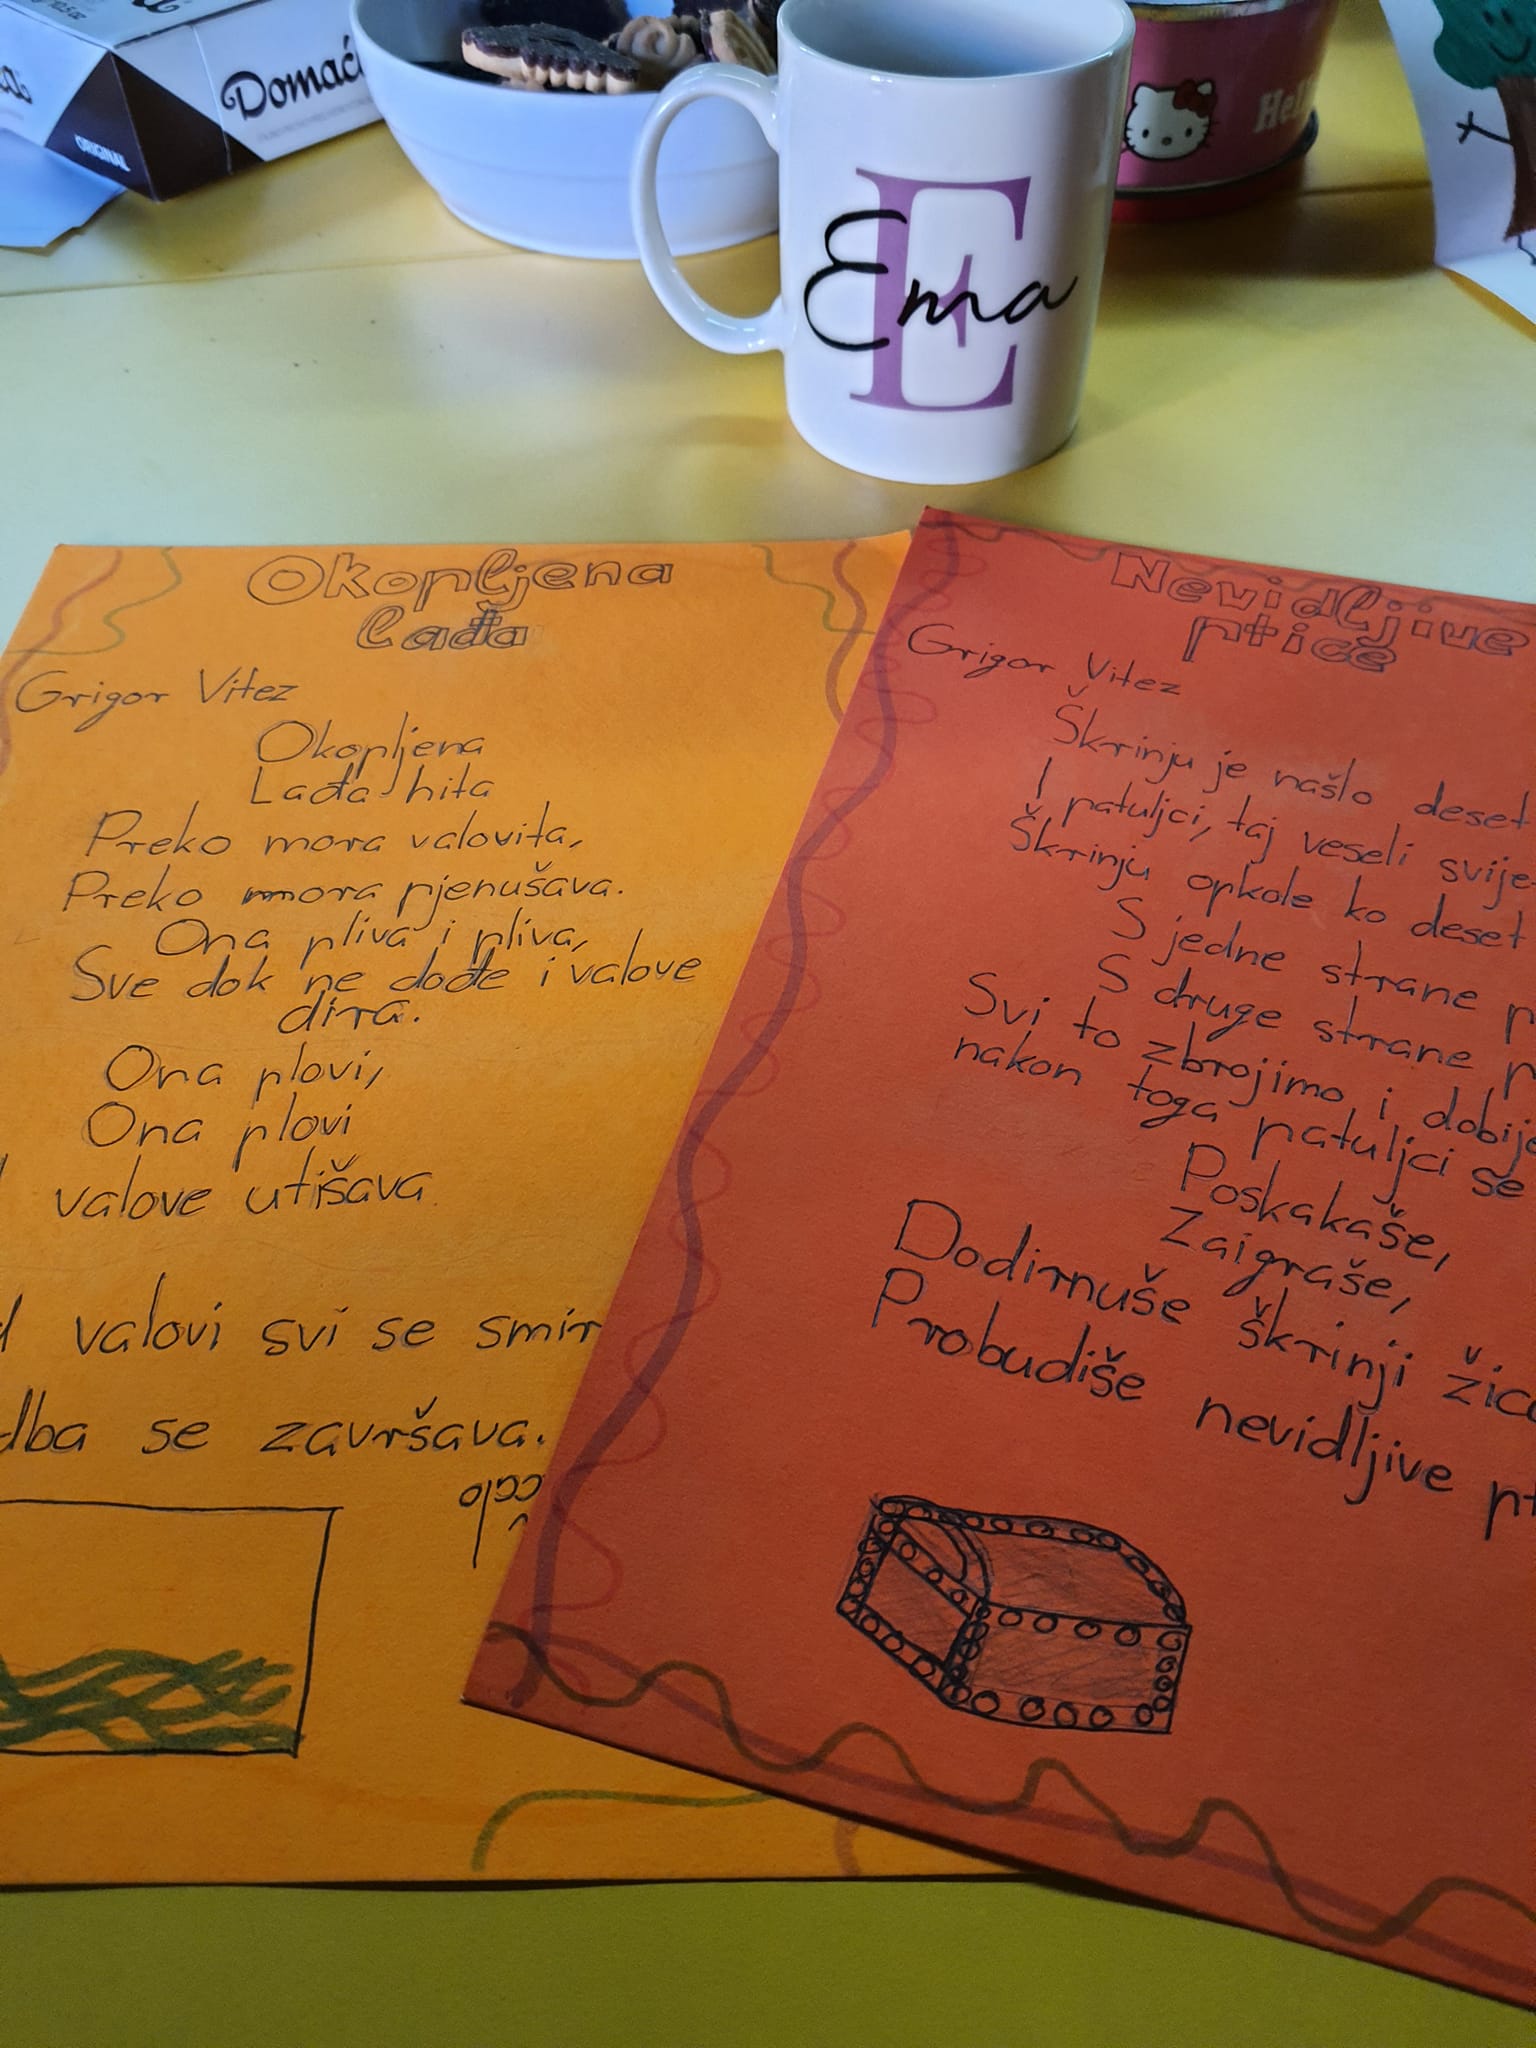 Domać
ORIGINAL
E
Ema
Hell
Okopljena
lađa
Grigor Vitez
Okopljena
Lađa hita
Preko mora valovita,
Preko mora pjenušava.
Ona pliva i pliva,
Sve dok ne dođe i valove
dira.
Ona plovi,
Ona plovi
valove utišava
valovi svi se smir
dba se završava.
Nevidljive
ptice
Grigor Vitez
Škrinju je našlo deset
I patuljci, taj veseli svije
Škrinju opkole ko deset
S jedne strane p
S druge strane p
Svi to zbrojimo i dobije
nakon toga patuljci se
Poskakaše,
Zaigraše,
Dodirnuše škrinji žica
Probudiše nevidljive pt